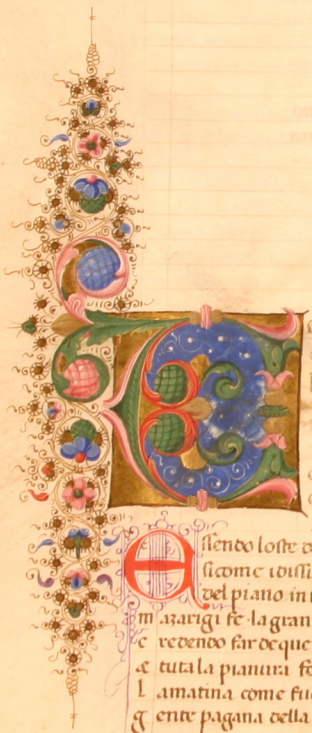 E
E ssendo loste d
si come i dissi
del piano in
m azarigi fe la gran
c redendo far de que
æ tuta la pianura fe
l a matina come fu
g ente pagana della